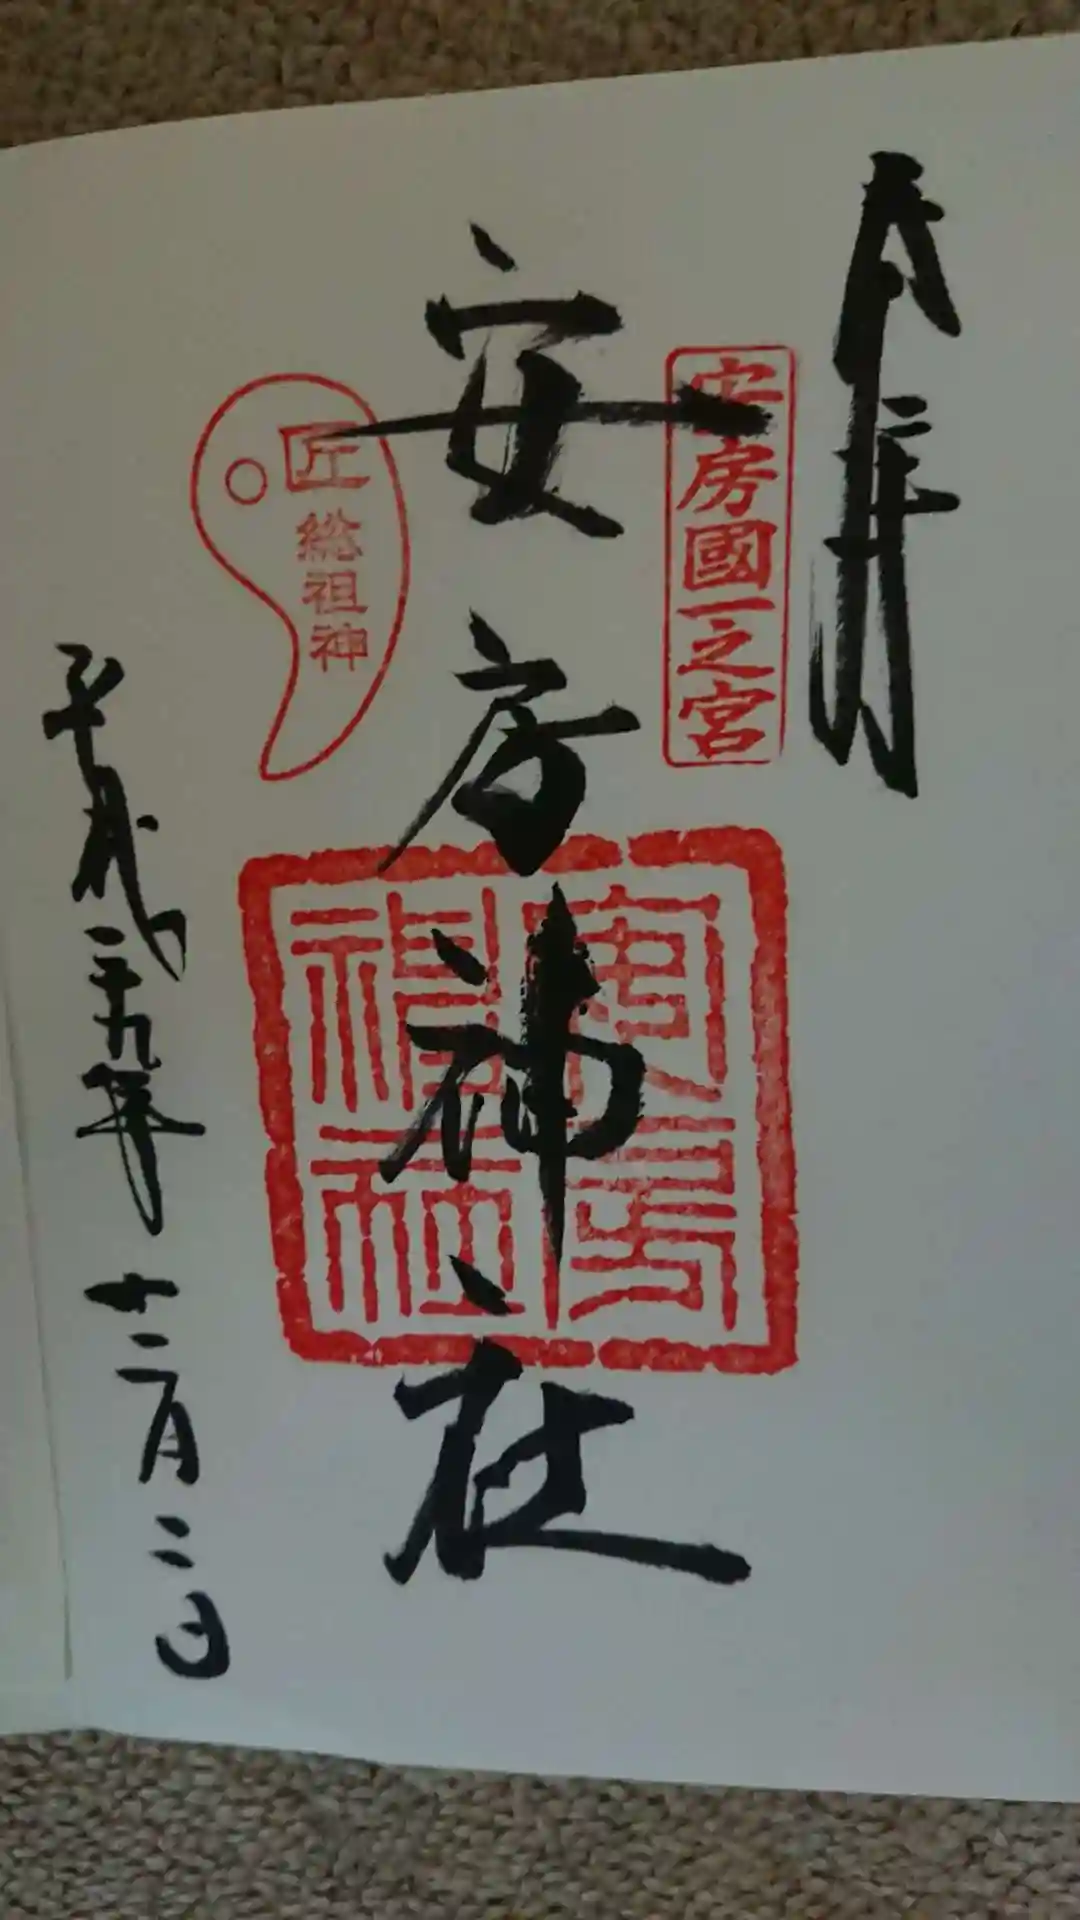 奉拝
安房國一之宮
安房神社
安房神社
匠
総祖神
平成二十九年 十二月二日